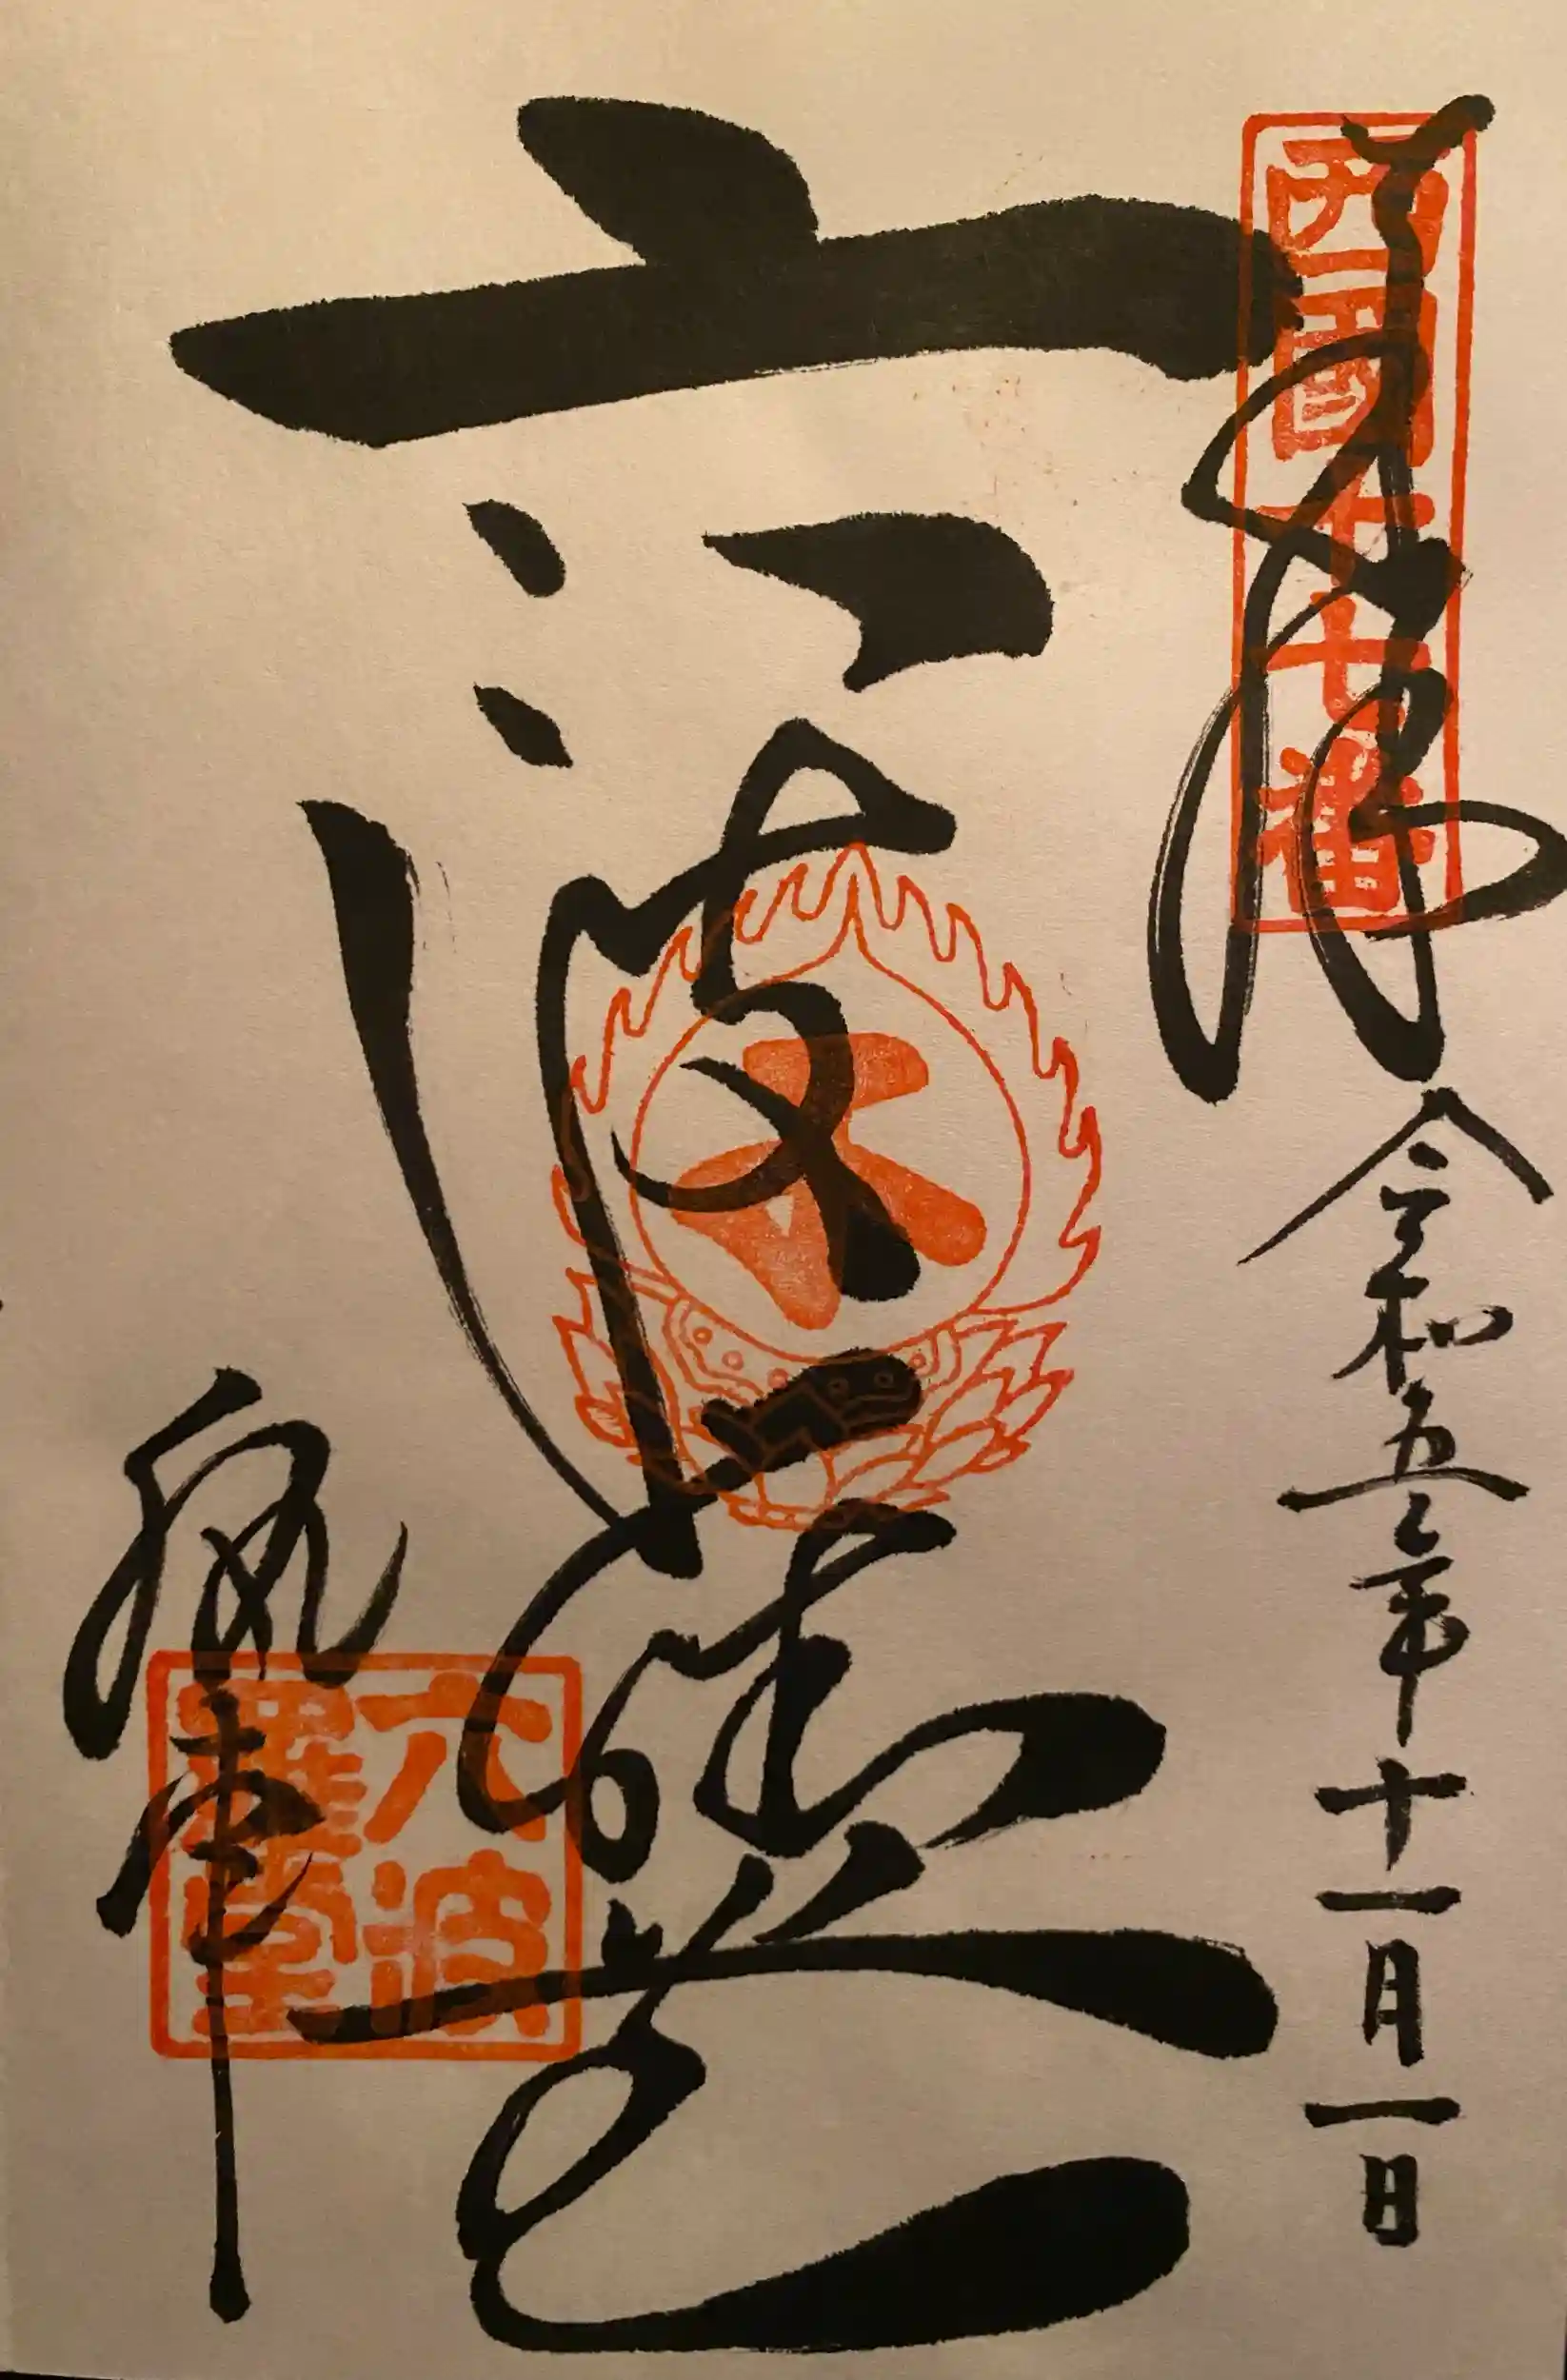 西國十七番
奉拝
令和五年十一月一日
六波羅堂
執事
六波羅堂